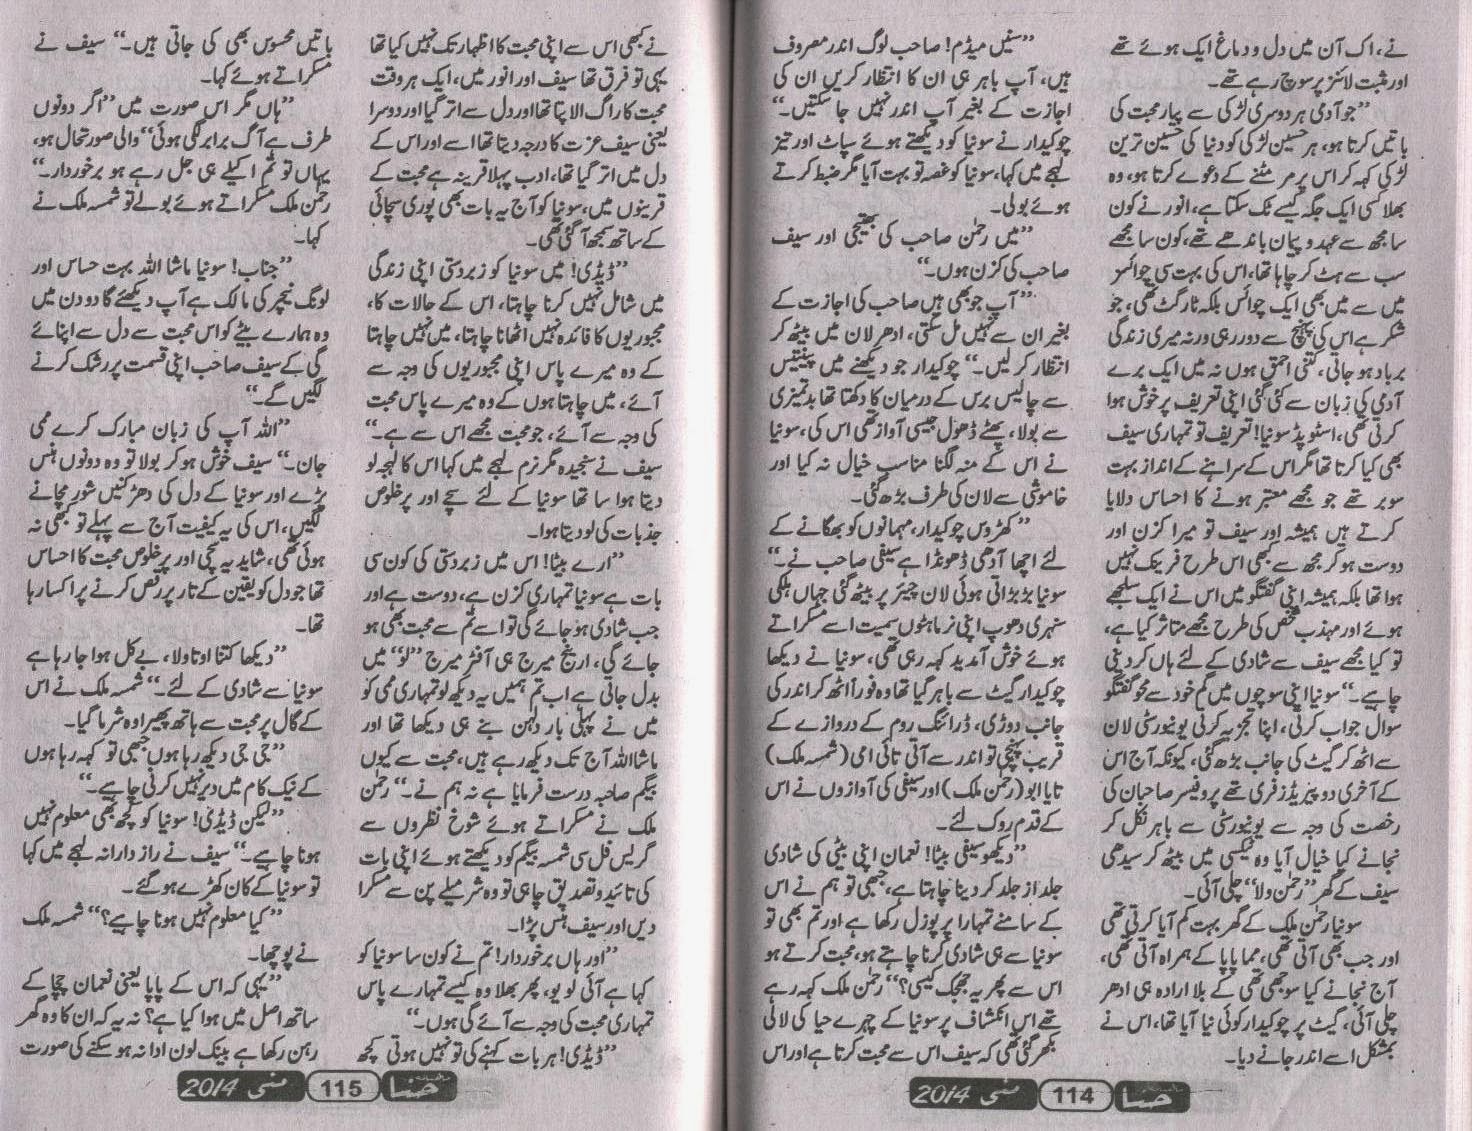 نے، اک آن میں دل و دماغ ایک ہوئے تھے
اور مثبت لائنز پر سوچ رہے تھے۔
”جو آدمی ہر دوسری لڑکی سے پیار محبت کی
باتیں کرتا ہو، ہر حسین لڑکی کو دنیا کی حسین ترین
لڑکی کہہ کر اس پر مر مٹنے کے دعوے کرتا ہو، وہ
بھلا کسی ایک جگہ کیسے ٹک سکتا ہے، انور نے کون
سا مجھ سے عہد و پیمان باندھے تھے، کون سا مجھے
سب سے ہٹ کر چاہا تھا، اس کی بہت سی چوائسز
میں سے میں بھی ایک چوائس بلکہ ٹارگٹ تھی، جو
شکر ہے اس کی پہنچ سے دور رہی ورنہ میری زندگی
برباد ہو جاتی، کتنی احمق ہوں نہ میں ایک برے
آدمی کی زبان سے کی گئی اپنی تعریف پر خوش ہوا
کرتی تھی، اسٹوپڈ سونیا! تعریف تو تمہاری سیف
بھی کیا کرتا تھا مگر اس کے سراہنے کے انداز بہت
سوبر تھے جو مجھے معتبر ہونے کا احساس دلایا
کرتے ہیں ہمیشہ اور سیف تو میرا کزن اور
دوست ہو کر مجھ سے کبھی اس طرح فرینک نہیں
ہوا تھا بلکہ ہمیشہ اپنی گفتگو میں اس نے ایک سلجھے
ہوئے اور مہذب شخص کی طرح مجھے متاثر کیا ہے،
تو کیا مجھے سیف سے شادی کے لئے ہاں کر دینی
چاہیے۔“ سونیا اپنی سوچوں میں گم خود سے محو گفتگو
سوال جواب کرتی، اپنا تجزیہ کرتی یونیورسٹی لان
سے اٹھ کر گیٹ کی جانب بڑھ گئی، کیونکہ آج اس
کے آخری دو پیریڈز فری تھے پروفیسر صاحبان کی
رخصت کی وجہ سے یونیورسٹی سے باہر نکل کر
نجانے کیا خیال آیا وہ ٹیکسی میں بیٹھ کر سیدھی
سیف کے گھر ”رحمٰن ولا“ چلی آئی۔
سونیا رحمٰن ملک کے گھر بہت کم آیا کرتی تھی
اور جب بھی آتی تھی، مما پاپا کے ہمراہ آتی تھی،
آج نجانے کیا سوجھی تھی کے بلا ارادہ ہی ادھر
چلی آئی، گیٹ پر چوکیدار کوئی نیا آیا تھا، اس نے
بمشکل اسے اندر جانے دیا۔
”سنیں میڈم! صاحب لوگ اندر مصروف
ہیں، آپ باہر ہی ان کا انتظار کریں ان کی
اجازت کے بغیر آپ اندر نہیں جا سکتیں۔“
چوکیدار نے سونیا کو دیکھتے ہوئے سپاٹ اور تیز
لہجے میں کہا، سونیا کو غصہ تو بہت آیا مگر ضبط کرتے
ہوئے بولی۔
”میں رحمٰن صاحب کی بھتیجی اور سیف
صاحب کی کزن ہوں۔“
”آپ جو بھی ہیں صاحب کی اجازت کے
بغیر ان سے نہیں مل سکتی، ادھر لان میں بیٹھ کر
انتظار کر لیں۔“ چوکیدار جو دیکھنے میں پینتیس
سے چالیس برس کے درمیان کا دکھتا تھا بدتمیزی
سے بولا، پھٹے ڈھول جیسی آواز تھی اس کی، سونیا
نے اس کے منہ لگنا مناسب خیال نہ کیا اور
خاموشی سے لان کی طرف بڑھ گئی۔
”کھڑوس چوکیدار، مہمانوں کو بھگانے کے
لئے اچھا آدمی ڈھونڈا ہے سیفی صاحب نے۔“
سونیا بڑبڑاتی ہوئی لان چیئر پر بیٹھ گئی جہاں ہلکی
سنہری دھوپ اپنی نرماہٹوں سمیت اسے مسکراتے
ہوئے خوش آمدید کہہ رہی تھی، سونیا نے دیکھا
چوکیدار گیٹ سے باہر گیا تھا وہ فوراً اٹھ کر اندر کی
جانب دوڑی، ڈرائنگ روم کے دروازے کے
قریب پہنچی تو اندر سے آتی تائی امی (شمسہ ملک)
تایا ابو (رحمٰن ملک) اور سیفی کی آوازوں نے اس
کے قدم روک لئے۔
”دیکھو سیفی بیٹا! نعمان اپنی بیٹی کی شادی
جلد از جلد کر دینا چاہتا ہے، جبھی تو ہم نے اس
کے سامنے تمہارا پرپوزل رکھا ہے اور تم بھی تو
سونیا سے ہی شادی کرنا چاہتے ہو، محبت کرتے ہو
اس سے پھر یہ جھجک کیسی؟“ رحمٰن ملک کہہ رہے
تھے اس انکشاف پر سونیا کے چہرے حیا کی لالی
بکھر گئی تھی کہ سیف اس سے محبت کرتا ہے اور اس
حنا 114 مئی 2014
نے کبھی اس سے اپنی محبت کا اظہار تک نہیں کیا تھا
یہی تو فرق تھا سیف اور انور میں، ایک ہر وقت
محبت کا راگ الاپتا تھا اور دل سے اتر گیا اور دوسرا
یعنی سیف عزت کا درجہ دیتا تھا اسے اور اس کے
دل میں اتر گیا تھا، ادب پہلا قرینہ ہے محبت کے
قرینوں میں، سونیا کو آج یہ بات بھی پوری سچائی
کے ساتھ سمجھ آ گئی تھی۔
”ڈیڈی! میں سونیا کو زبردستی اپنی زندگی
میں شامل نہیں کرنا چاہتا، اس کے حالات کا،
مجبوریوں کا فائدہ نہیں اٹھانا چاہتا، میں نہیں چاہتا
کے وہ میرے پاس اپنی مجبوریوں کی وجہ سے
آئے، میں چاہتا ہوں کے وہ میرے پاس محبت
کی وجہ سے آئے، جو محبت مجھے اس سے ہے۔“
سیف نے سنجیدہ مگر نرم لہجے میں کہا اس کا لہجہ لو
دیتا ہوا سا تھا سونیا کے لئے سچے اور پرخلوص
جذبات کی لو دیتا ہوا۔
”ارے بیٹا! اس میں زبردستی کی کون سی
بات ہے سونیا تمہاری کزن ہے، دوست ہے اور
جب شادی ہو جائے گی تو اسے تم سے محبت بھی ہو
جائے گی، ارینج میرج ہی آفٹر میرج ”لو“ میں
بدل جاتی ہے اب تم ہمیں یہ دیکھ لو تمہاری ممی کو
میں نے پہلی بار دلہن بنے ہی دیکھا تھا اور
ماشااللہ آج تک دیکھ رہے ہیں، محبت سے کیوں
بیگم صاحبہ درست فرمایا ہے نہ ہم نے۔“ رحمٰن
ملک نے مسکراتے ہوئے شوخ نظروں سے
گریس فل سی شمسہ بیگم کو دیکھتے ہوئے اپنی بات
کی تائید و تصدیق چاہی تو وہ شرمیلے پن سے مسکرا
دیں اور سیف ہنس پڑا۔
”اور ہاں برخوردار! تم نے کون سا سونیا کو
کہا ہے آئی لو یو، پھر بھلا وہ کیسے تمہارے پاس
تمہاری محبت کی وجہ سے آئے گی ہوں۔“
”ڈیڈی! ہر بات کہنے کی تو نہیں ہوتی کچھ
باتیں محسوس بھی کی جاتی ہیں۔“ سیف نے
مسکراتے ہوئے کہا۔
”ہاں مگر اس صورت میں ”اگر دونوں
طرف ہے آگ برابر لگی ہوئی“ والی صورتحال ہو،
یہاں تو تم اکیلے ہی جل رہے ہو برخوردار۔“
رحمٰن ملک مسکراتے ہوئے بولے تو شمسہ ملک نے
کہا۔
”جناب! سونیا ماشا اللہ بہت حساس اور
لونگ نیچر کی مالک ہے آپ دیکھئے گا دو دن میں
وہ ہمارے بیٹے کو اس محبت سے دل سے اپنائے
گی کے سیف صاحب اپنی قسمت پر رشک کرنے
لگیں گے۔“
”اللہ آپ کی زبان مبارک کرے ممی
جان۔“ سیف خوش ہو کر بولا تو وہ دونوں ہنس
پڑے اور سونیا کے دل کی دھڑکنیں شور مچانے
لگیں، اس کی یہ کیفیت آج سے پہلے تو کبھی نہ
ہوئی تھی، شاید یہ سچی اور پرخلوص محبت کا احساس
تھا جو دل کو یقین کے تار پر رقص کرنے پر اکسا رہا
تھا۔
”دیکھا کتنا اوتاولا، بے کل ہوا جا رہا ہے
سونیا سے شادی کے لئے۔“ شمسہ ملک نے اس
کے گال پر محبت سے ہاتھ پھیرا وہ شرما گیا۔
”جی جی دیکھ رہا ہوں جبھی تو کہہ رہا ہوں
کے نیک کام میں دیر نہیں کرنی چاہیے۔“
”لیکن ڈیڈی! سونیا کو کچھ بھی معلوم نہیں
ہونا چاہیے۔“ سیف نے رازدارانہ لہجے میں کہا
تو سونیا کے کان کھڑے ہو گئے۔
”کیا معلوم نہیں ہونا چاہیے؟“ شمسہ ملک
نے پوچھا۔
”یہی کہ اس کے پاپا یعنی نعمان چچا کے
ساتھ اصل میں ہوا کیا ہے؟ نہ یہ کہ ان کا وہ گھر
رہن رکھا ہے بینک لون ادا نہ ہو سکنے کی صورت
حنا 115 مئی 2014